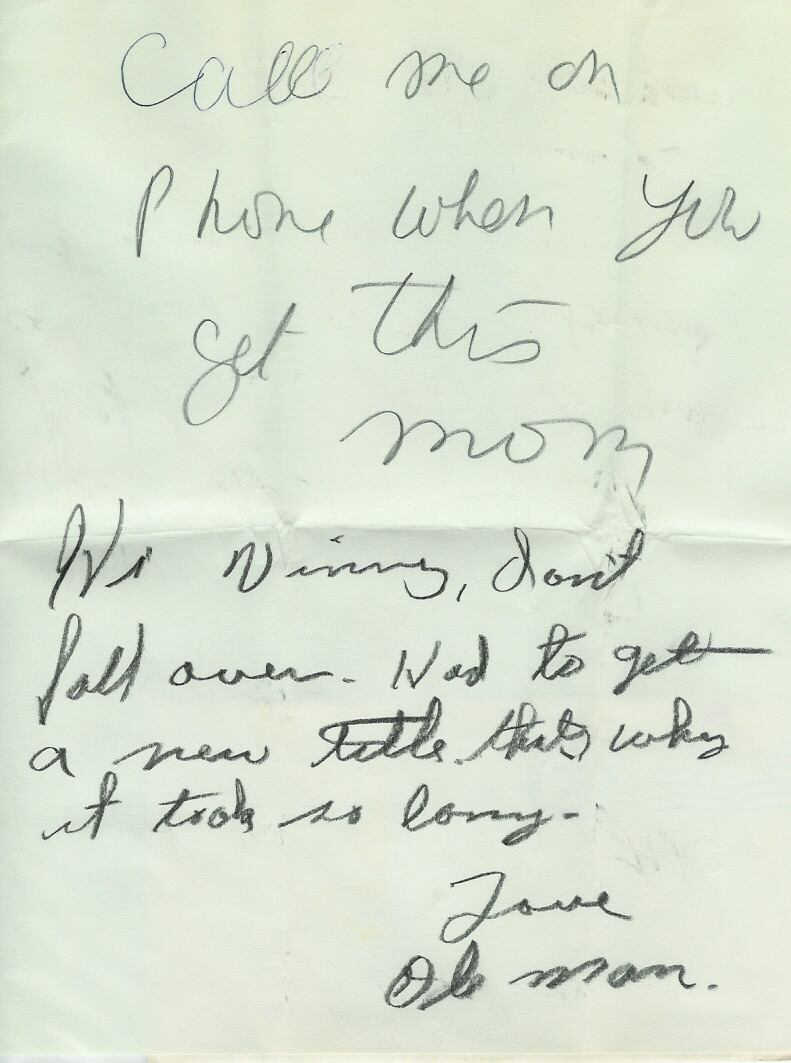 Call me on
Phone when you
get this
mom
Hi Ninny, don't
fall over. Had to get
a new title. that's why
it took so long.
Love
Ole man.